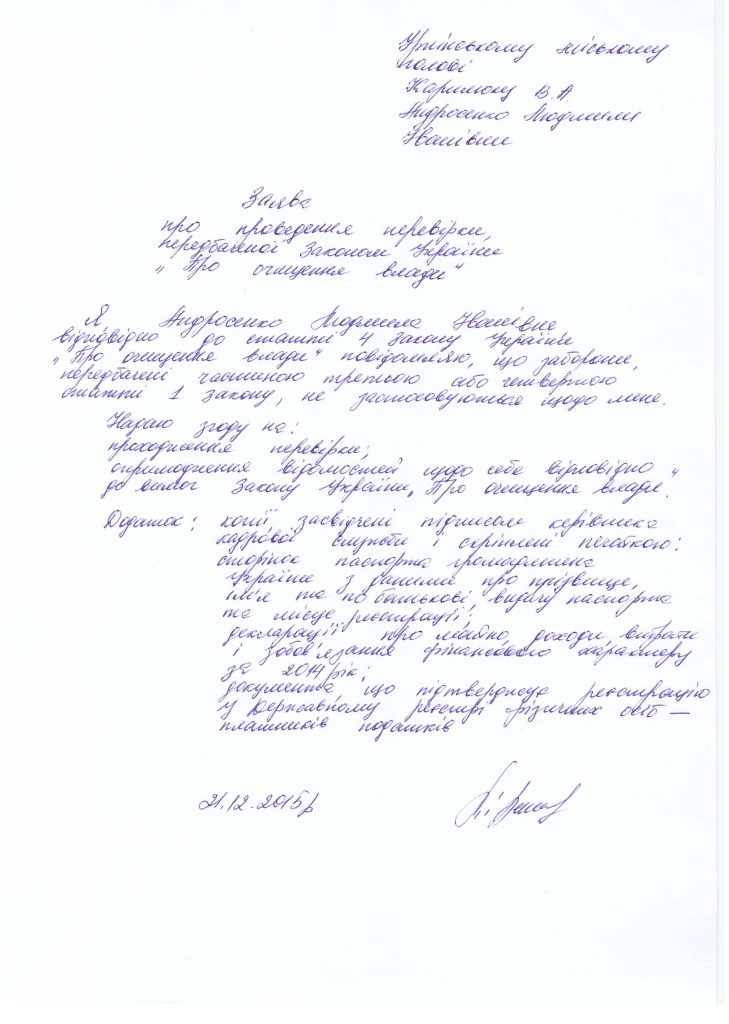 Ірпінському міському
голові
Карплюку В.А.
Андросенко Людмили
Іванівни
Заява
про проведення перевірки,
передбаченої Законом України
„Про очищення влади"
Я Андросенко Людмила Іванівна
відповідно до статті 4 Закону України
„Про очищення влади" повідомляю, що заборони,
передбачені частиною третьою або четвертою
статті 1 Закону, не застосовуються щодо мене.
Надаю згоду на:
проходження перевірки;
оприлюднення відомостей щодо себе відповідно
до вимог Закону України „Про очищення влади".
Додаток: копії засвідчені підписом керівника
кадрової служби і скріплені печаткою:
сторінок паспорта громадянина
України з даними про прізвище,
ім'я та по батькові, видачу паспорта
та місце реєстрації;
декларації про майно, доходи, витрати
і зобов'язання фінансового характеру
за 2014 рік;
документа, що підтверджує реєстрацію
у Державному реєстрі фізичних осіб —
платників податків
21.12.2015р